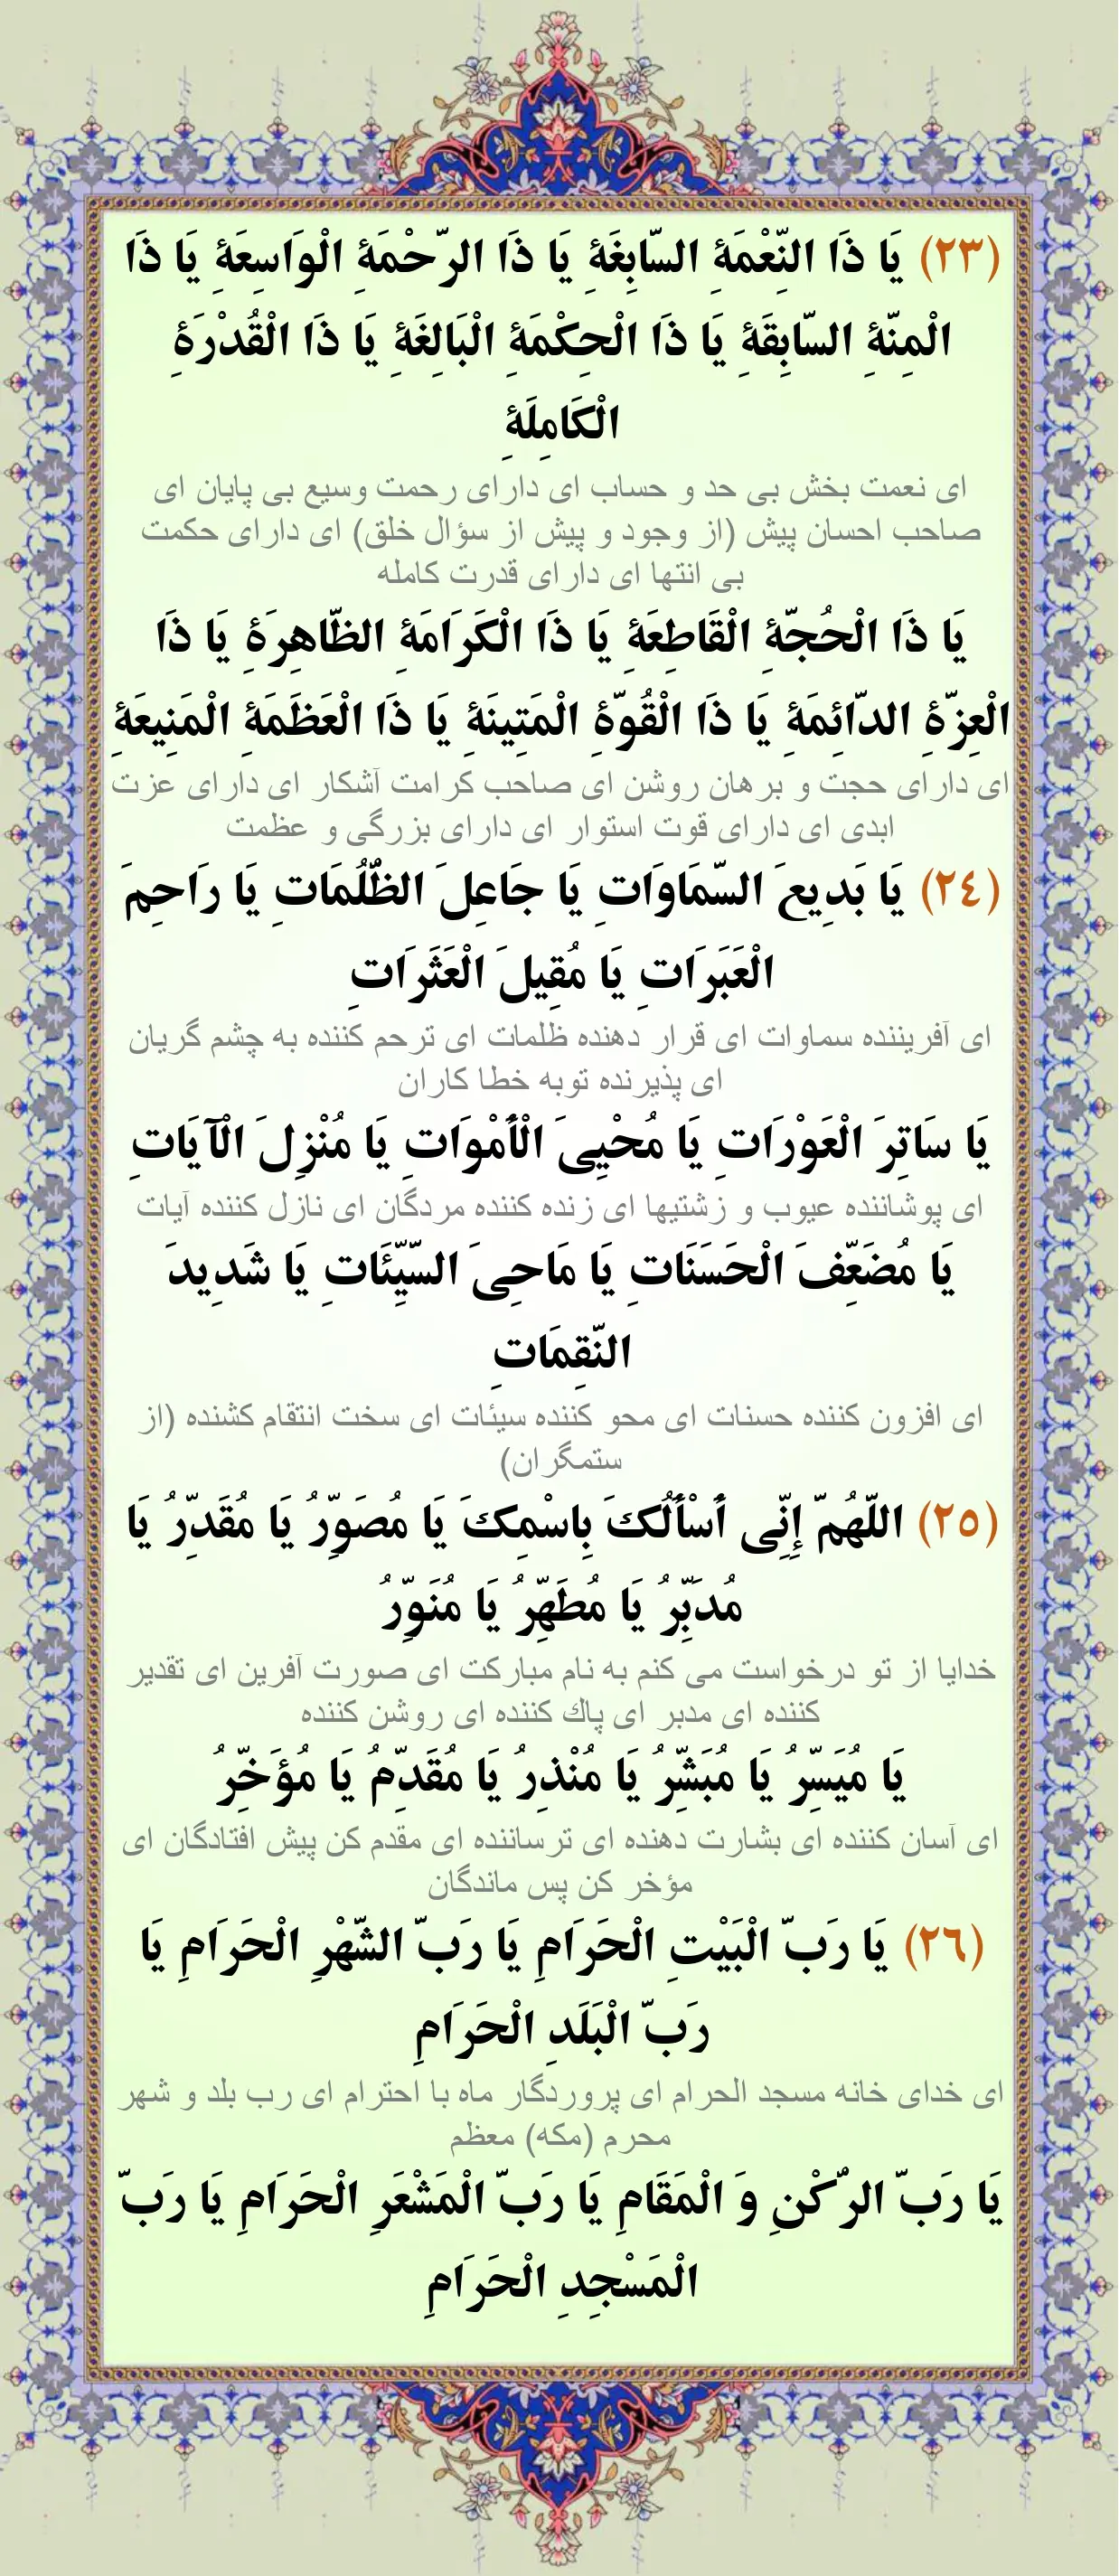 (٢٣) يَا ذَا النِّعْمَةِ السَّابِغَةِ يَا ذَا الرَّحْمَةِ الْوَاسِعَةِ يَا ذَا
الْمِنَّةِ السَّابِقَةِ يَا ذَا الْحِكْمَةِ الْبَالِغَةِ يَا ذَا الْقُدْرَةِ
الْكَامِلَةِ
ای نعمت بخش بی حد و حساب ای دارای رحمت وسیع بی پایان ای
صاحب احسان پیش (از وجود و پیش از سؤال خلق) ای دارای حکمت
بی انتها ای دارای قدرت کامله
يَا ذَا الْحُجَّةِ الْقَاطِعَةِ يَا ذَا الْكَرَامَةِ الظَّاهِرَةِ يَا ذَا
الْعِزَّةِ الدَّائِمَةِ يَا ذَا الْقُوَّةِ الْمَتِينَةِ يَا ذَا الْعَظَمَةِ الْمَنِيعَةِ
ای دارای حجت و برهان روشن ای صاحب کرامت آشکار ای دارای عزت
ابدی ای دارای قوت استوار ای دارای بزرگی و عظمت
(٢٤) يَا بَدِيعَ السَّمَاوَاتِ يَا جَاعِلَ الظُّلُمَاتِ يَا رَاحِمَ
الْعَبَرَاتِ يَا مُقِيلَ الْعَثَرَاتِ
ای آفریننده سماوات ای قرار دهنده ظلمات ای ترحم کننده به چشم گریان
ای پذیرنده توبه خطا کاران
يَا سَاتِرَ الْعَوْرَاتِ يَا مُحْيِیَ الْأَمْوَاتِ يَا مُنْزِلَ الْآيَاتِ
ای پوشاننده عیوب و زشتیها ای زنده کننده مردگان ای نازل کننده آیات
يَا مُضَعِّفَ الْحَسَنَاتِ يَا مَاحِیَ السَّيِّئَاتِ يَا شَدِيدَ
النَّقِمَاتِ
ای افزون کننده حسنات ای محو کننده سیئات ای سخت انتقام کشنده (از
ستمگران)
(٢٥) اللَّهُمَّ إِنِّی أَسْأَلُكَ بِاسْمِكَ يَا مُصَوِّرُ يَا مُقَدِّرُ يَا
مُدَبِّرُ يَا مُطَهِّرُ يَا مُنَوِّرُ
خدایا از تو درخواست می کنم به نام مبارکت ای صورت آفرین ای تقدیر
کننده ای مدبر ای پاك کننده ای روشن کننده
يَا مُيَسِّرُ يَا مُبَشِّرُ يَا مُنْذِرُ يَا مُقَدِّمُ يَا مُؤَخِّرُ
ای آسان کننده ای بشارت دهنده ای ترساننده ای مقدم کن پیش افتادگان ای
مؤخر کن پس ماندگان
(٢٦) يَا رَبَّ الْبَيْتِ الْحَرَامِ يَا رَبَّ الشَّهْرِ الْحَرَامِ يَا
رَبَّ الْبَلَدِ الْحَرَامِ
ای خدای خانه مسجد الحرام ای پروردگار ماه با احترام ای رب بلد و شهر
محرم (مکه) معظم
يَا رَبَّ الرُّكْنِ وَ الْمَقَامِ يَا رَبَّ الْمَشْعَرِ الْحَرَامِ يَا رَبَّ
الْمَسْجِدِ الْحَرَامِ